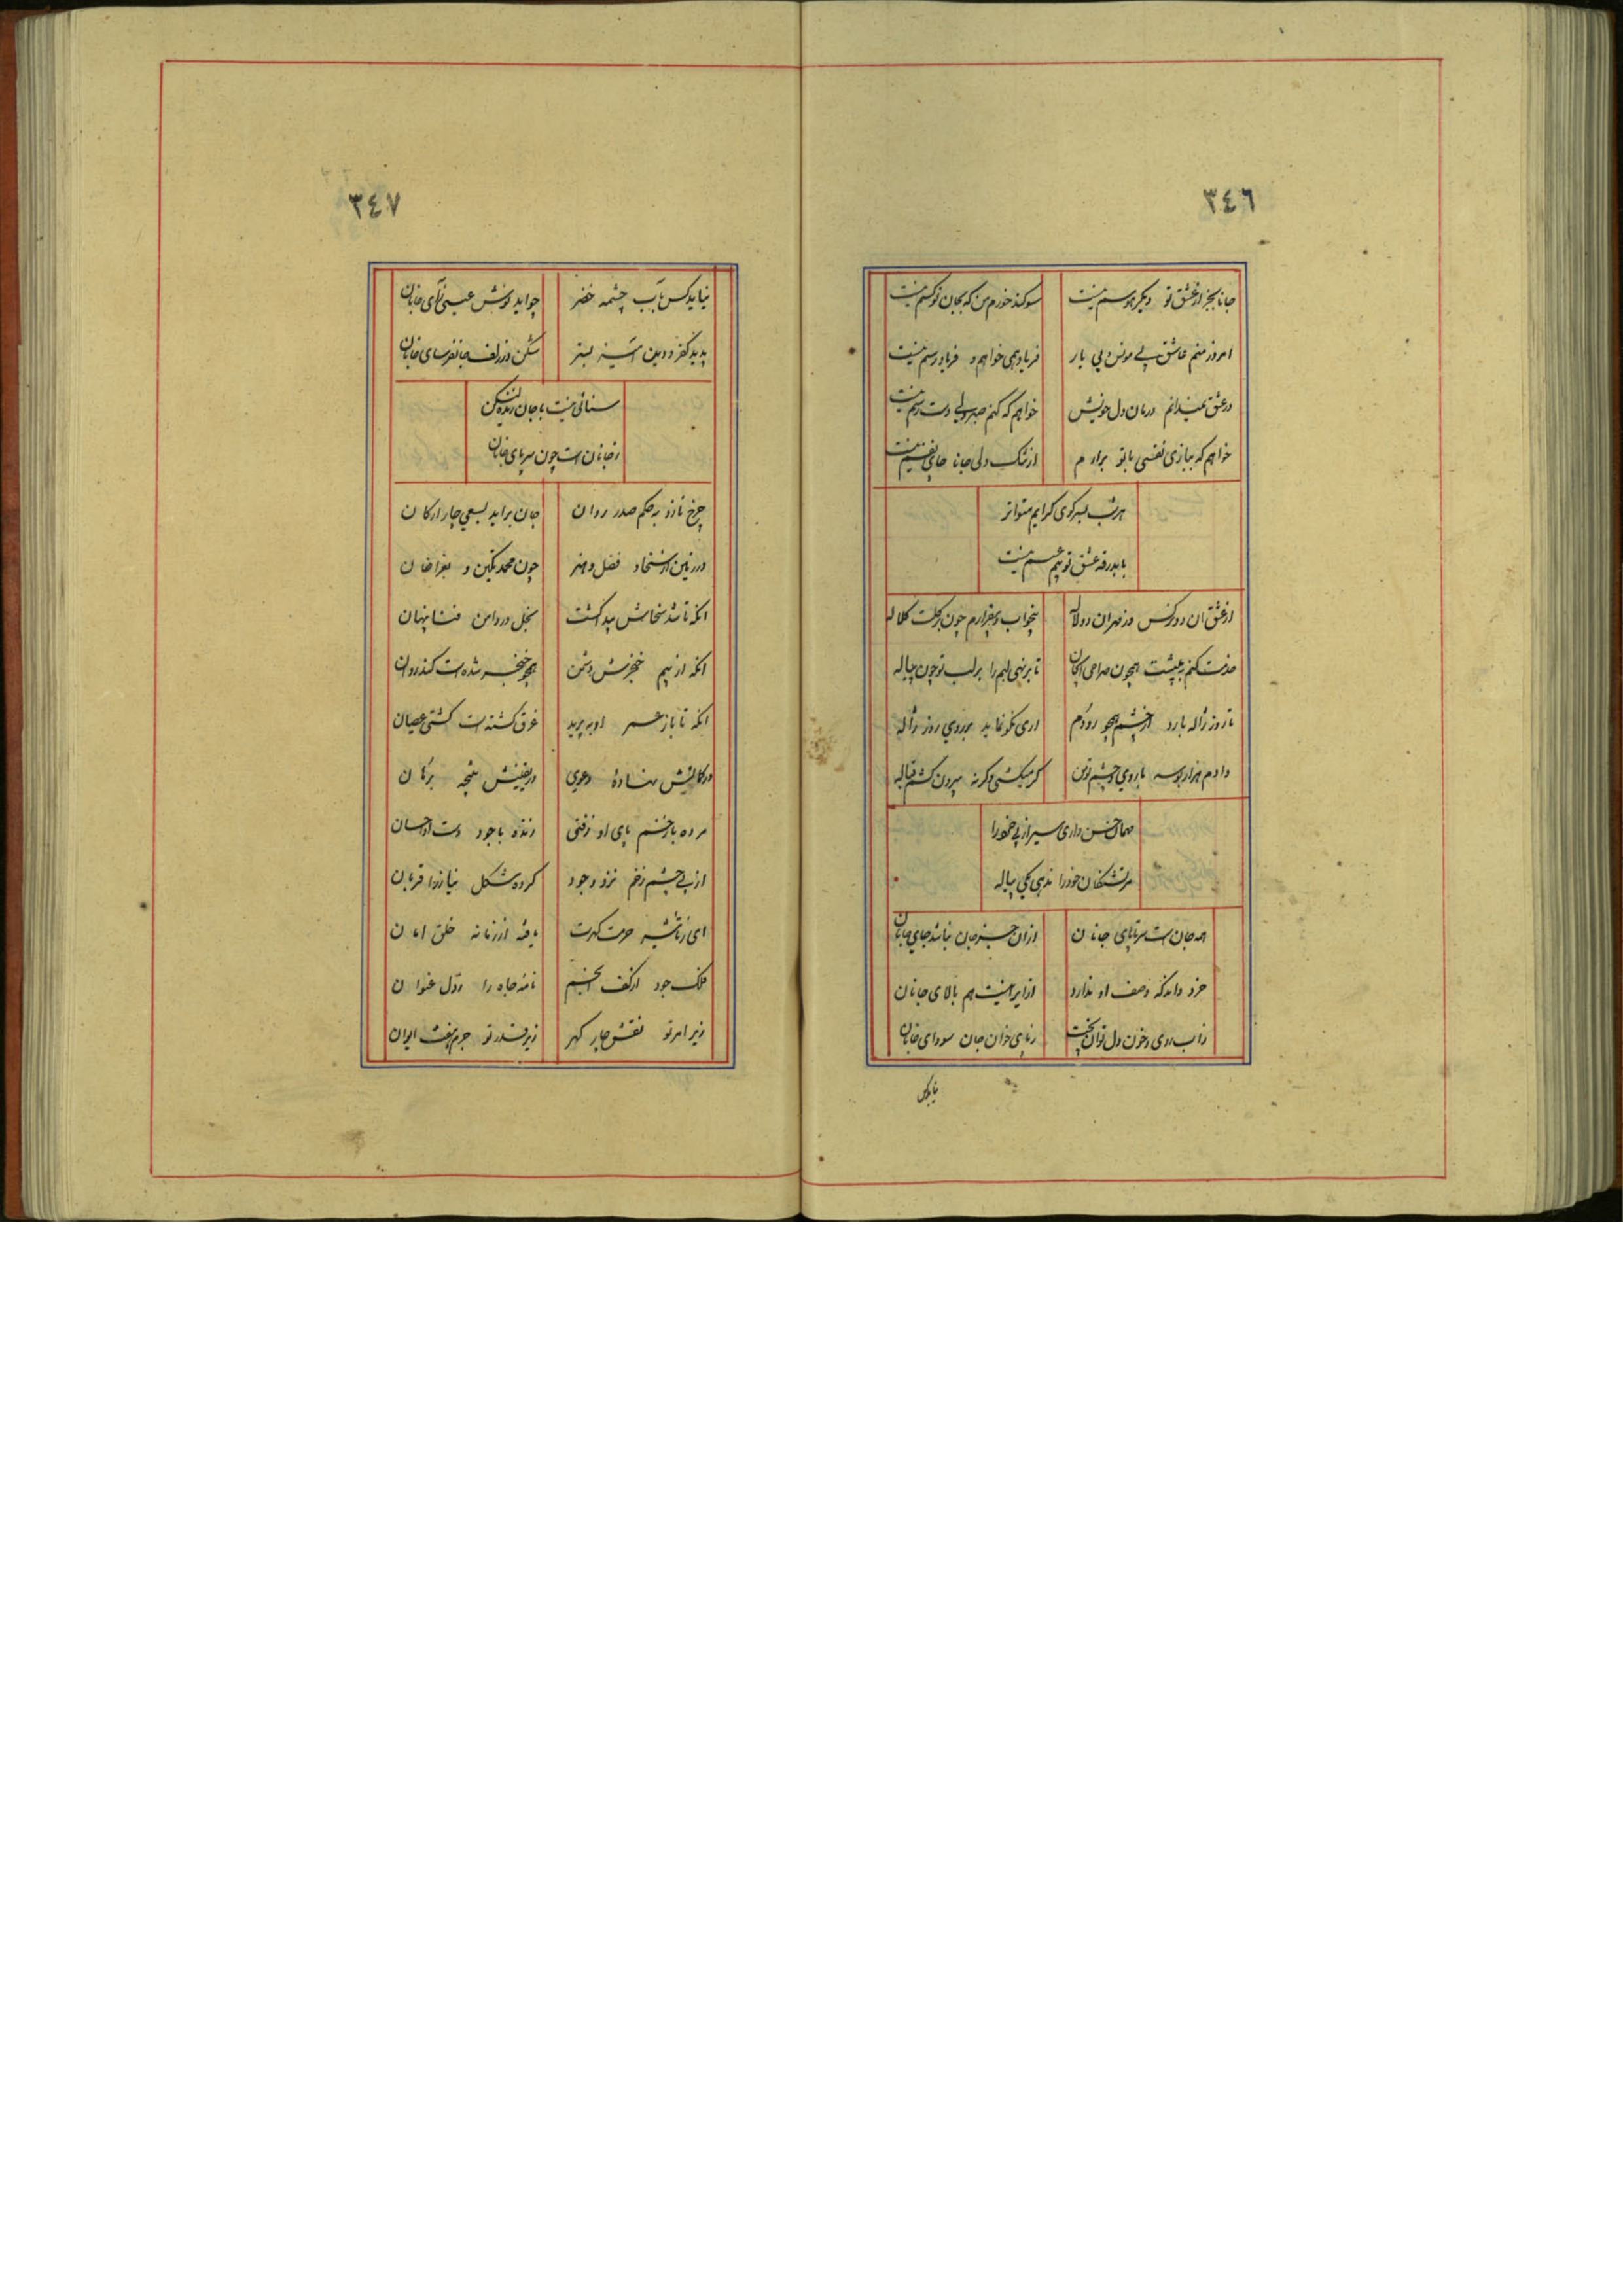 ٣٤٦
جانا بجز از عشق تو دیگر هوسم نیست
سوکند خورم من که بجای تو کسم نیست
امروز منم عاشق بی مونس و بی یار
فریاد همی خواهم و فریادرسم نیست
در عشق نمیدانم درمان دل خویش
خواهم که کنم صبر ولی دست رسم نیست
خواهم که ببازی نفسی با تو برارم
از تنک دلی جانا جای نفسم نیست
هر شب بسر کوی کرایم متواتر
با بدرقه عشق تو بیم عسسم نیست
از عشق ان دو نرکس وز مهران دو لاله
بیخواب و بیقرارم چون بر کلت کلاله
خدمت کنم به پیشت همچون صراحی از جان
تا برنهی لبم را بر لب تو چون پیاله
تا روز ژاله بارد از چشم همچو رودم
اری نکو نماید بر روی روز ژاله
دادم هزار بوسه با روی و چشم تو من
کر میکشی وکرنه بیرون کشم قباله
مهمان حسن داری سیر از پی خدا را
مر تشنکان خود را ندهی یکی پیاله
همه جان است سر تا پای جانان
از ان جز جان نباشد جای جانان
خرد داند که وصف او نداند
از ایرا نیست هم بالای جانان
ز اب روی و خون دل توان پخت
سودای جانان
نیابد کس
٣٤٧
نیابد کس باب چشمه خضر
چو ابد نوش عیسی زای جانان
پدید کفر و دین
شکن در زلف جانفرسای جانان
سنائی نیست با جان زنده لیکن
ز جانان است چون سر پای جانان
چرخ نارد به حکم صدر روان
جان برابد بسعی چار ارکان
در زمین از سخا و فضل و هنر
چون محمد تکین و بغراخان
انکه تا شد سخاش پیدا کشت
بخل در دامن فنا پنهان
انکه از بیم خنجرش دشمن
همچو خنجر شده است کند زوان
انکه تا باز عمر او بپرید
غرق کشته است کشتی عصیان
در کمالش نهاده دعوی
در یقینش نتیجه برهان
مرده با خشم پای او زفتی
زنده با جود دست او احسان
از پی چشم زخم نزد وجود
کرده شکل نیاز را قربان
ای ز تاثیر حرمت کهرت
یافته از زمانه خلق امان
فلک جود از کف انجم
نامه جاه را ز دل عنوان
زیر امر تو نقش چار کهر
زیر قدر تو جرم هفت ایوان